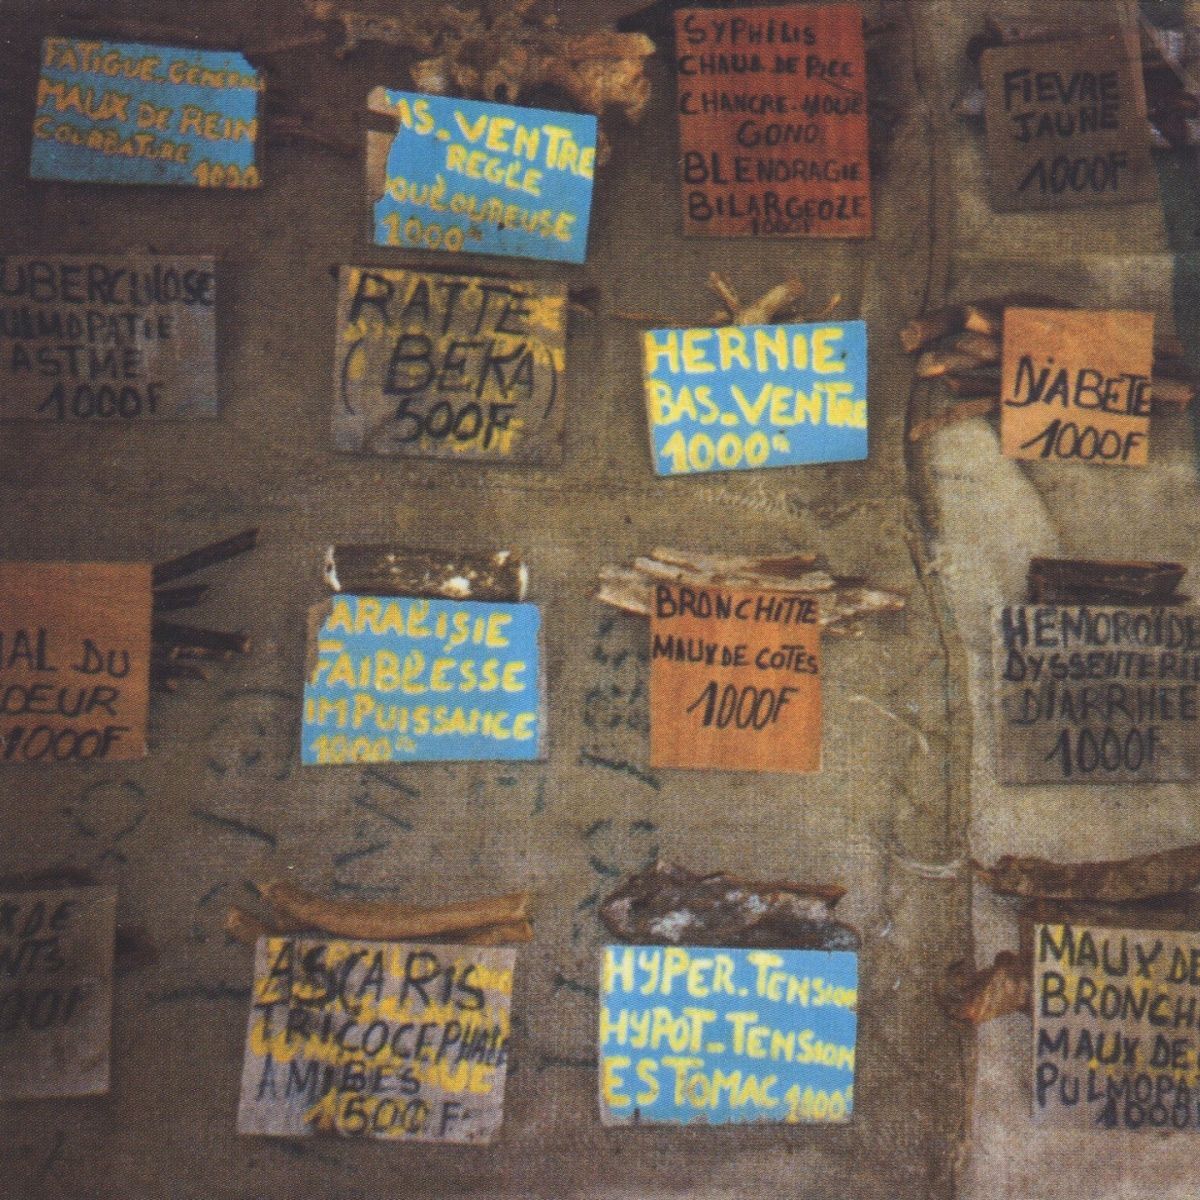 FATIGUE-GÉNÉRAL
MAUX DE REIN
COURBATURE
1000
AS-VENTRE
REGLE
OULOUREUSE
1000
SYPHILIS
CHAUD DE PICE
CHANCRE-MOUE
GONO
BLENORAGIE
BILARGEOZE
1000F
FIEVRE
JAUNE
1000F
UBERCULOSE
ULMOPATIE
ASTME
1000F
RATTE
(BEKA)
500F
HERNIE
BAS-VENTRE
1000
DIABETE
1000F
AL DU
OEUR
1000F
ARALISIE
FAIBLESSE
IMPUISSANCE
1000
BRONCHITTE
MAUX DE COTES
1000F
HEMOROÏD
DYSSENTERI
DIARRHEE
1000F
X DE
NTS
00F
ASCARIS
TRICOCEPHALE
AMIBES
1500F
HYPER-TENSION
HYPOT-TENSION
ESTOMAC 1000
MAUX DE
BRONCH
MAUX DE
PULMOPA
1000